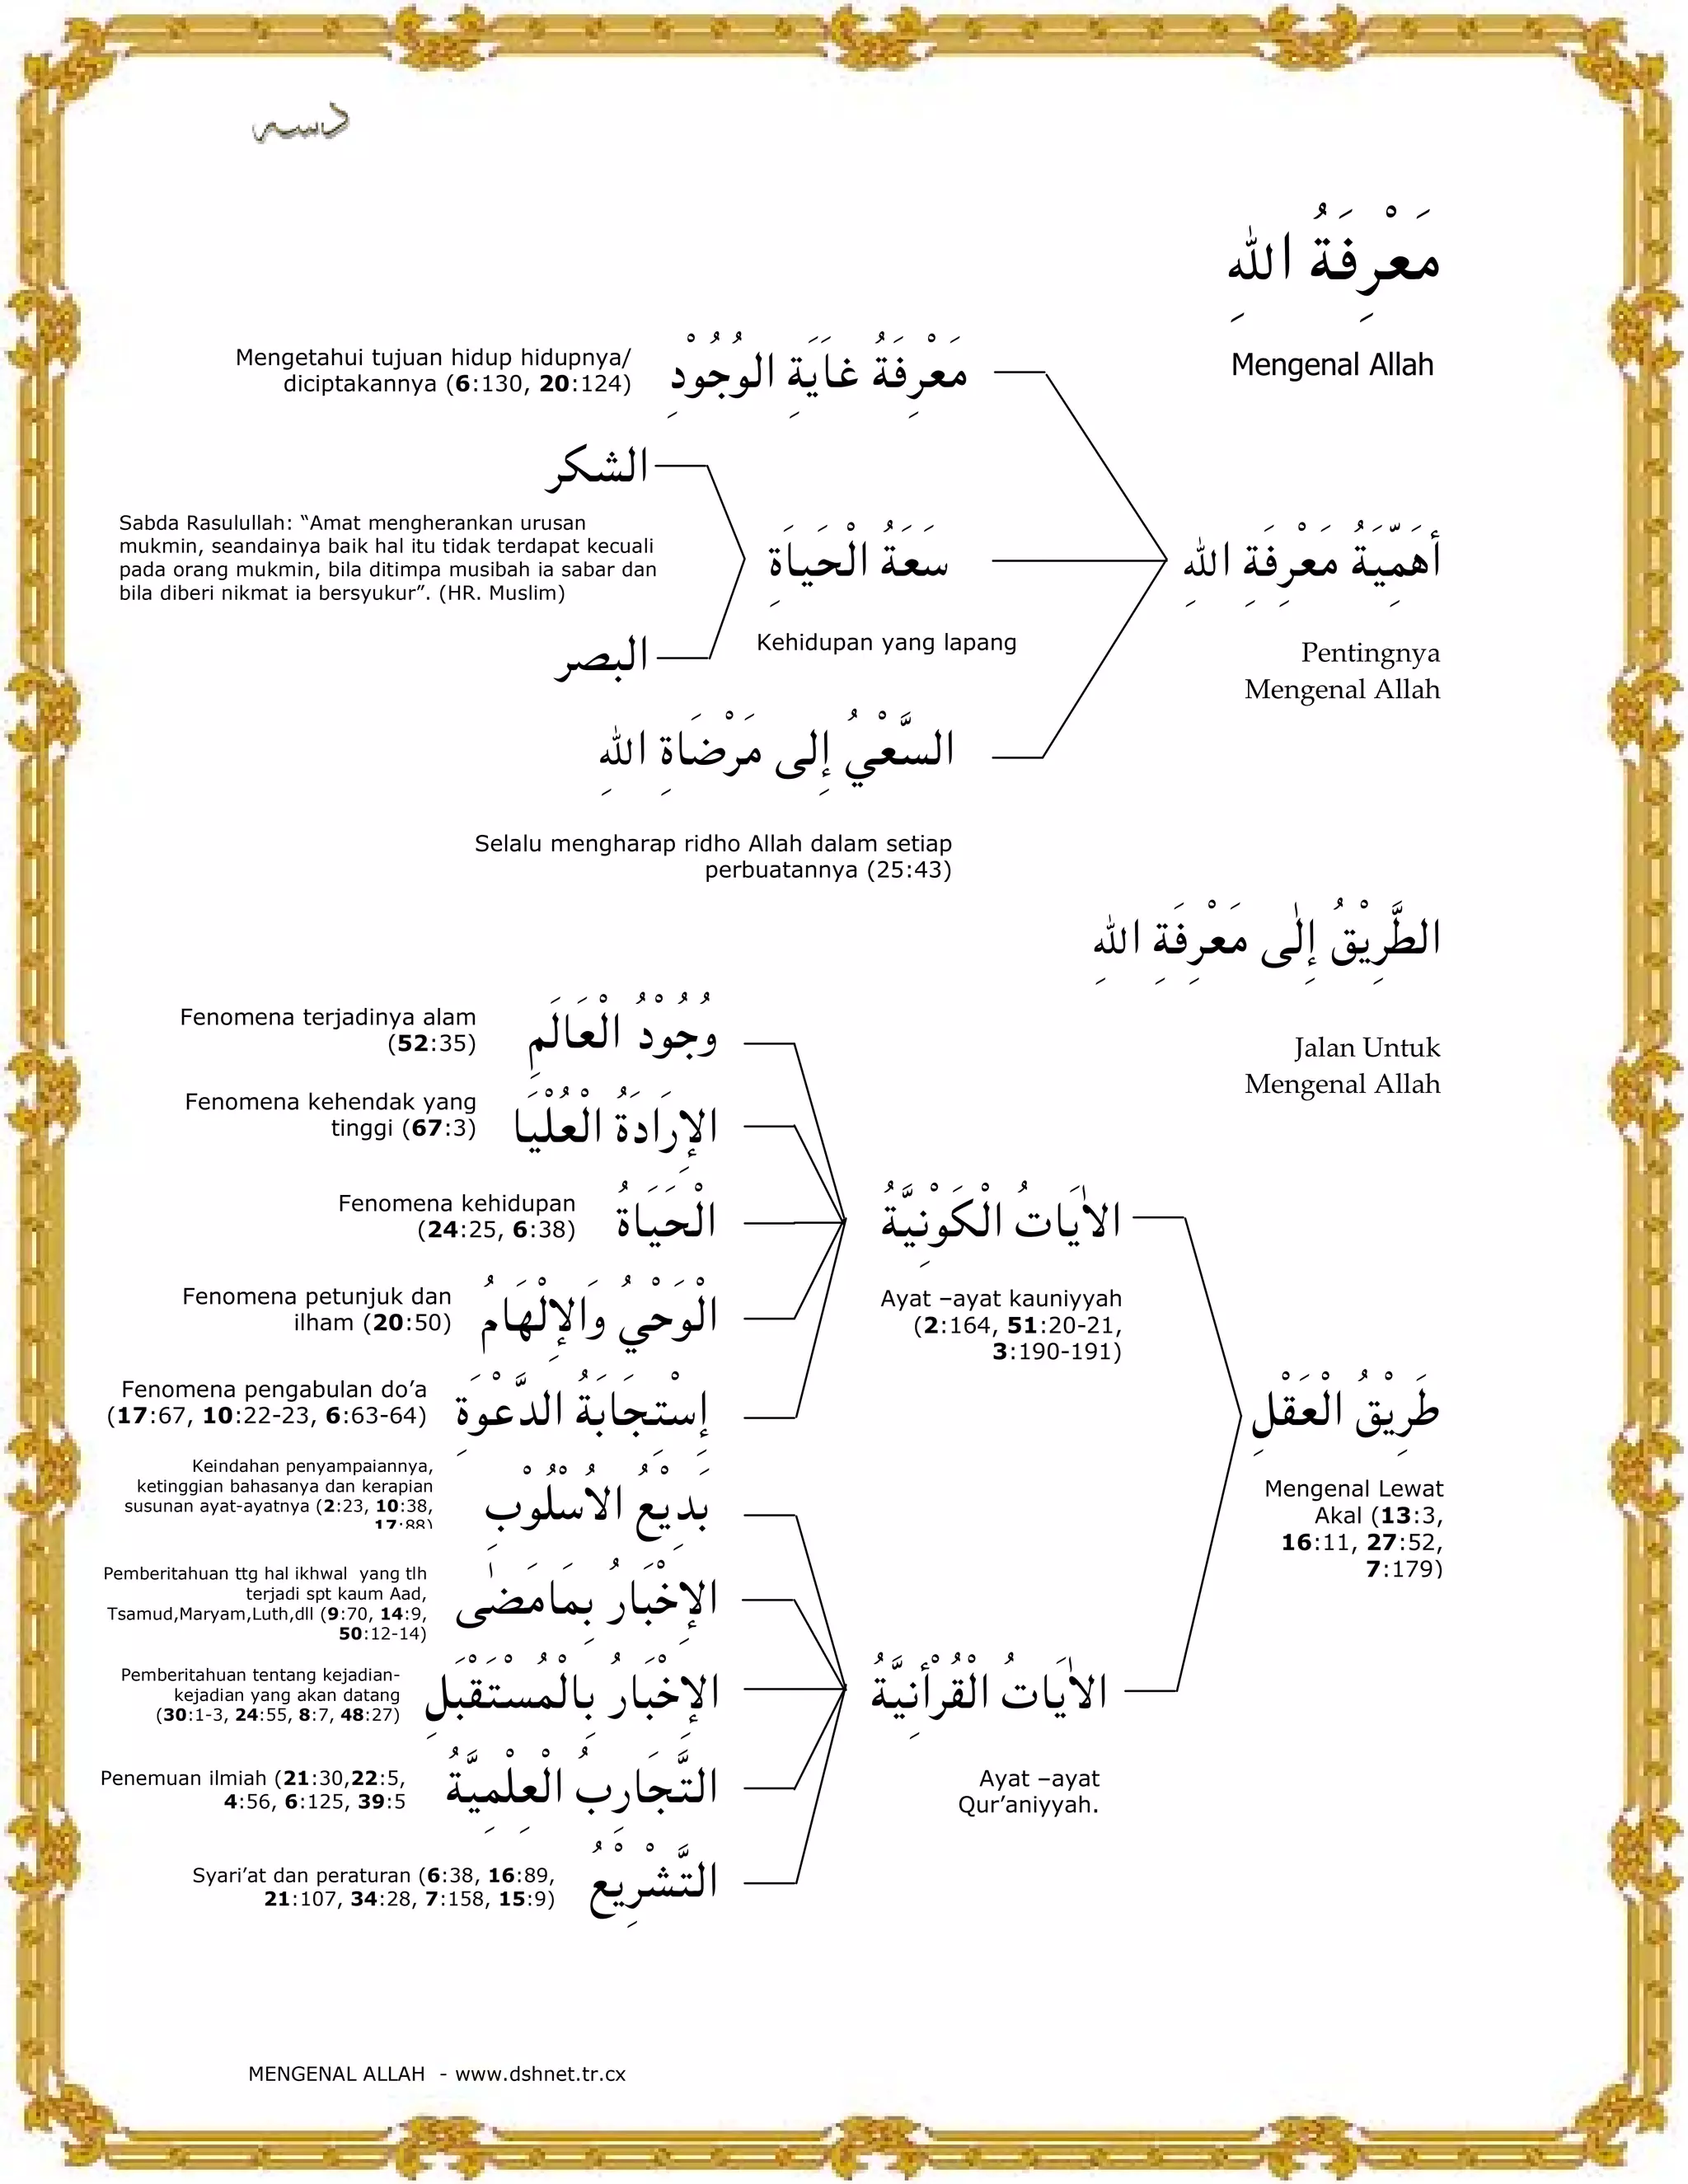 دسه
مَعْرِفَةُ اللهِ
Mengenal Allah
مَعْرِفَةُ غَايَةِ الوُجُوْدِ
Mengetahui tujuan hidup hidupnya/
diciptakannya (6:130, 20:124)
أَهَمِّيَةُ مَعْرِفَةِ اللهِ
Pentingnya
Mengenal Allah
سَعَةُ الْحَيَاةِ
Kehidupan yang lapang
الشكر
Sabda Rasulullah: “Amat mengherankan urusan
mukmin, seandainya baik hal itu tidak terdapat kecuali
pada orang mukmin, bila ditimpa musibah ia sabar dan
bila diberi nikmat ia bersyukur”. (HR. Muslim)
البصر
السَّعْيُ إِلى مَرْضَاةِ اللهِ
Selalu mengharap ridho Allah dalam setiap
perbuatannya (25:43)
الطَّرِيْقُ إِلٰى مَعْرِفَةِ اللهِ
Jalan Untuk
Mengenal Allah
طَرِيْقُ الْعَقْلِ
Mengenal Lewat
Akal (13:3,
16:11, 27:52,
7:179)
الاٰيَاتُ الْكَوْنِيَّةُ
Ayat –ayat kauniyyah
(2:164, 51:20-21,
3:190-191)
وُجُوْدُ الْعَالَمِ
Fenomena terjadinya alam
(52:35)
الإِرَادَةُ الْعُلْيَا
Fenomena kehendak yang
tinggi (67:3)
الْحَيَاةُ
Fenomena kehidupan
(24:25, 6:38)
الْوَحْيُ وَالإِلْهَامُ
Fenomena petunjuk dan
ilham (20:50)
إِسْتِجَابَةُ الدَّعْوَةِ
Fenomena pengabulan do’a
(17:67, 10:22-23, 6:63-64)
الاٰيَاتُ الْقُرْأنِيَّةُ
Ayat –ayat
Qur’aniyyah.
بَدِيْعُ الاُسْلُوْبِ
Keindahan penyampaiannya,
ketinggian bahasanya dan kerapian
susunan ayat-ayatnya (2:23, 10:38,
17:88)
الإِخْبَارُ بِمَامَضٰى
Pemberitahuan ttg hal ikhwal yang tlh
terjadi spt kaum Aad,
Tsamud,Maryam,Luth,dll (9:70, 14:9,
50:12-14)
الإِخْبَارُ بِالْمُسْتَقْبَلِ
Pemberitahuan tentang kejadian-
kejadian yang akan datang
(30:1-3, 24:55, 8:7, 48:27)
التَّجَارِبُ الْعِلْمِيَّةُ
Penemuan ilmiah (21:30,22:5,
4:56, 6:125, 39:5
التَّشْرِيْعُ
Syari’at dan peraturan (6:38, 16:89,
21:107, 34:28, 7:158, 15:9)
MENGENAL ALLAH - www.dshnet.tr.cx